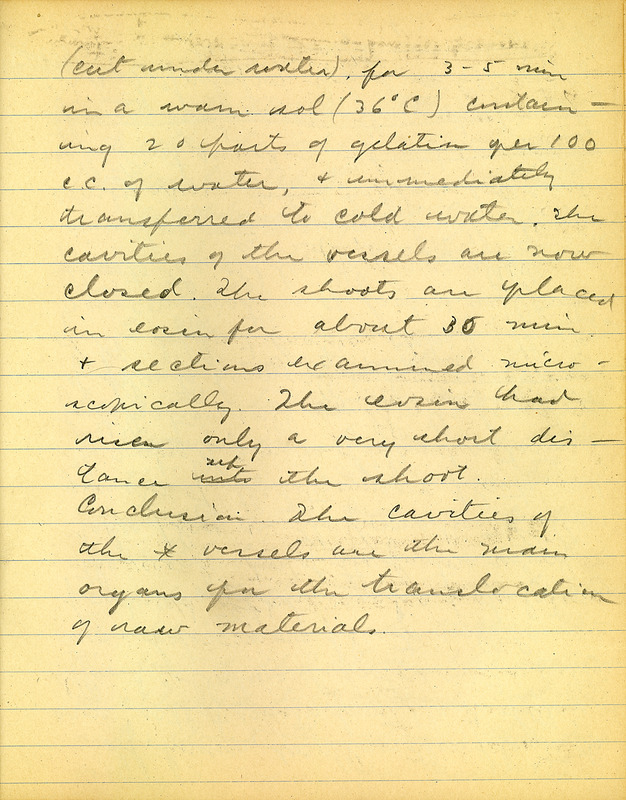 (cut under water), for 3-5 min
in a warm sol (36°C) contain-
ing 20 parts of gelatin per 100
c.c. of water, + immediately
transferred to cold water. The
cavities of the vessels are now
closed. The shoots are placed
in eosin for about 30 min
+ sections examined micro-
scopically. The eosin had
risen only a very short dis-
tance up the shoot.
Conclusion. The cavities of
the vessels are the main
organs for the translocation
of raw materials.